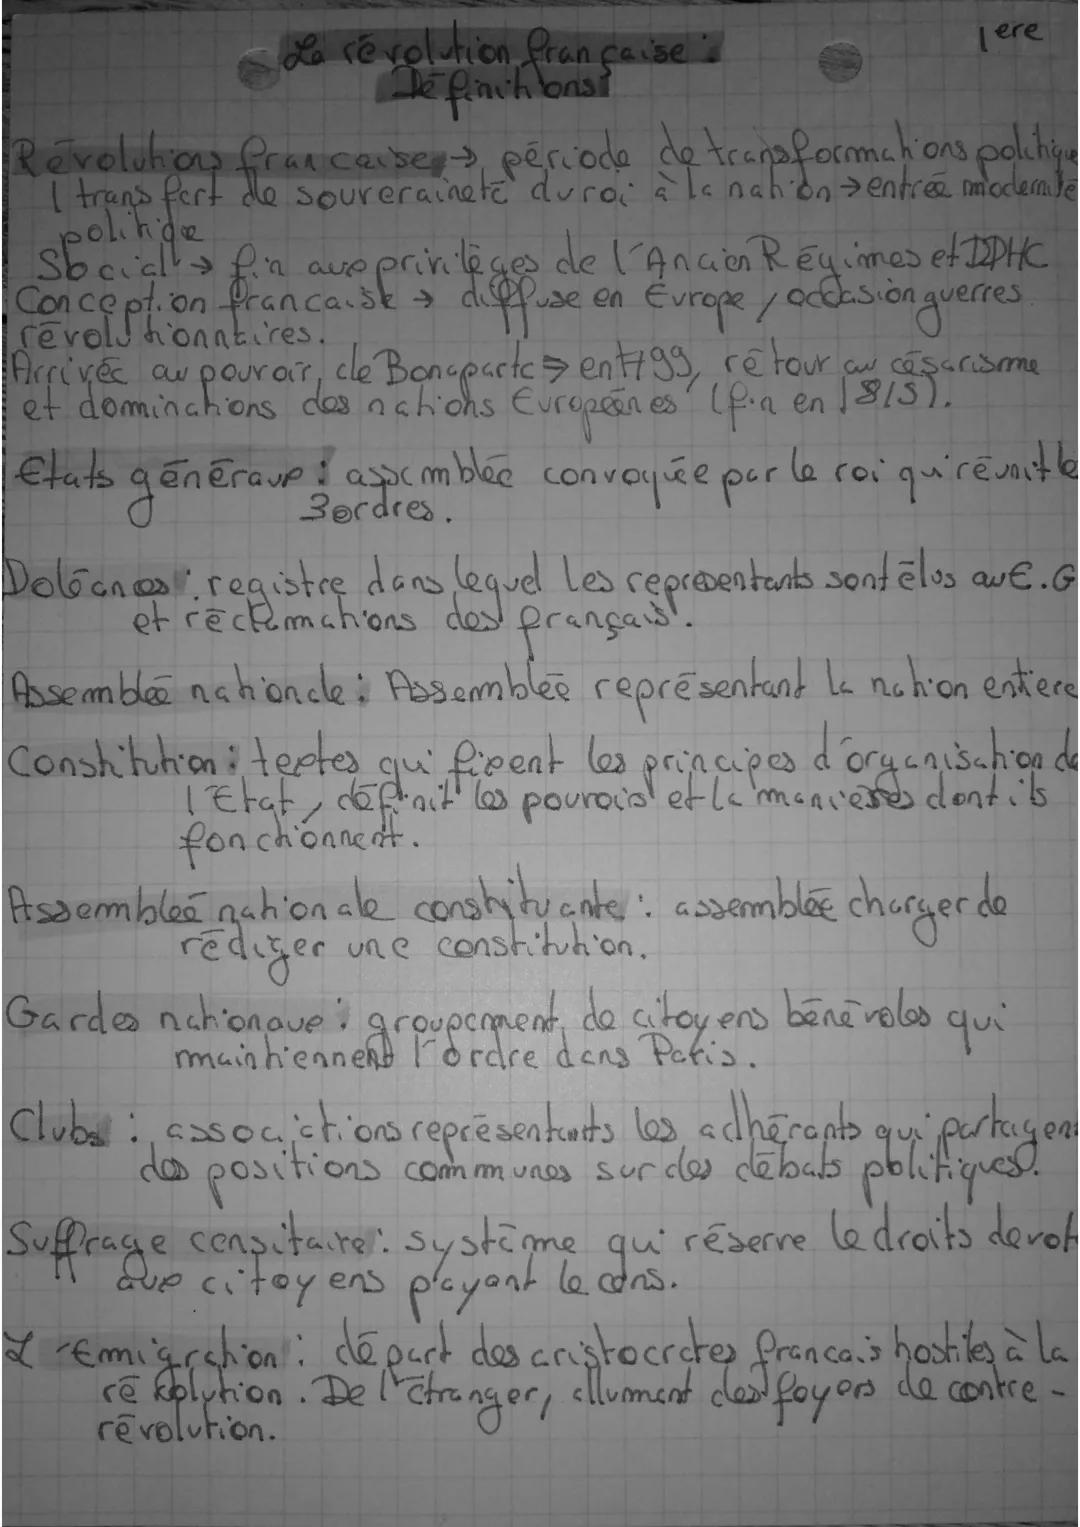 1 ere
La révolution française :
Définitions
Révolutions francaise → période de transformations politique
( transfert de souveraineté du roi à la nation → entrée modernité
politique
Social → fin aux privilèges de l'Ancien Régimes et DDHC
Conception francaise → diffuse en Europe, occasion guerres
révolutionnaires.
Arrivée au pouvoir, de Bonaparte → en 1799, rétour au césarisme
et dominations des nations Européenes (fin en 1815).
Etats généraux : assemblée convoquée par le roi qu'réunit le
3 ordres.
Doléances : registre dans lequel les representants sont élus au E.G
et réclamations des français.
Assemblée nationale : Assemblée représentant la nation entiere
Constitution : textes qui fixent les principes d'organisation de
l'Etat, définit les pouvois et la manieres dont ils
fonctionnent.
Assemblée nationale constituante : assemblée charger de
rédiger une constitution.
Gardes nationaux : groupement de citoyens bénévoles qui
maintiennent l'ordre dans Paris.
Clubs : associations représentants les adhérants qui partagent
des positions communes sur des débats politiques.
Suffrage censitaire : système qui réserve le droits de vot
aux citoyens payant le cens.
L'Emigration : départ des aristocrates francais hostiles à la
révolution. De l'étranger, allument des foyers de contre -
révolution.